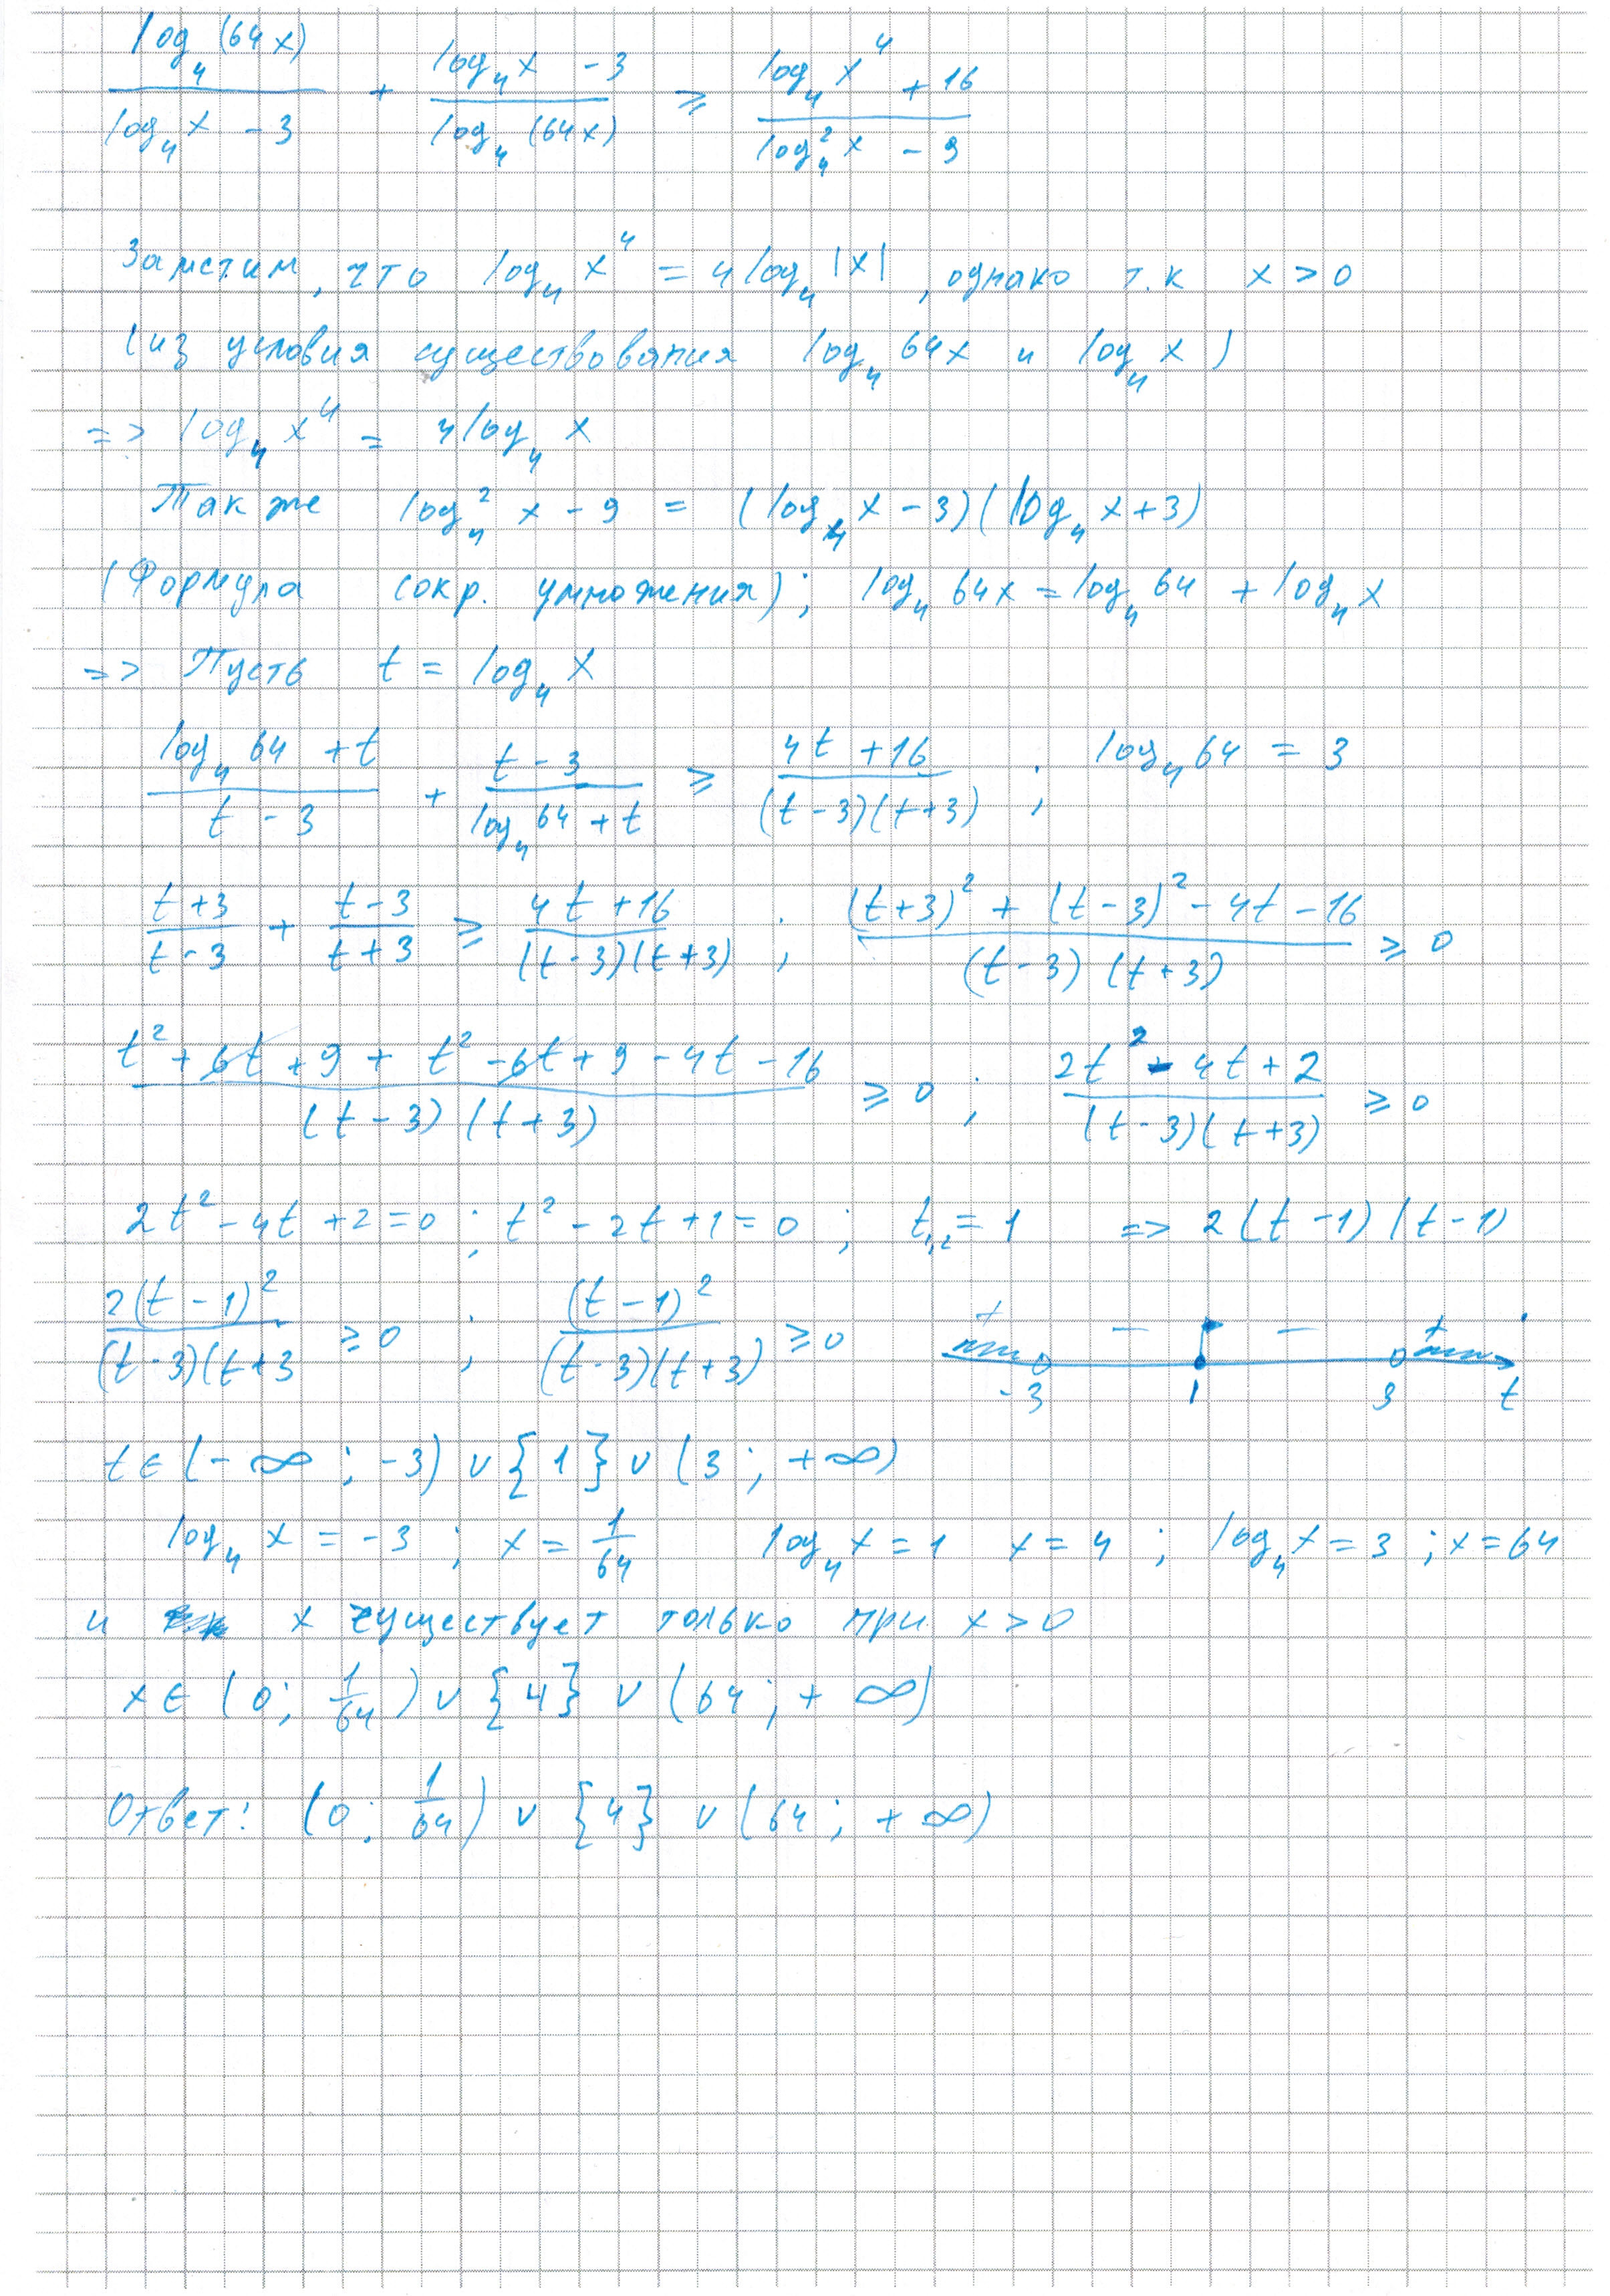 log₄(64x)/(log₄x - 3) + (log₄x - 3)/log₄(64x) ⩾ (log₄x⁴ + 16)/(log₄²x - 9)
Заметим, что log₄x⁴ = 4log₄|x|, однако т.к x > 0
(из условия существования log₄64x и log₄x)
=> log₄x⁴ = 4log₄x
Так же log₄²x - 9 = (log₄x - 3)(log₄x + 3)
(Формула сокр. умножения); log₄64x = log₄64 + log₄x
=> Пусть t = log₄x
(log₄64 + t)/(t - 3) + (t - 3)/(log₄64 + t) ⩾ (4t + 16)/((t - 3)(t + 3)) ; log₄64 = 3
(t + 3)/(t - 3) + (t - 3)/(t + 3) ⩾ (4t + 16)/((t - 3)(t + 3)) ; ((t + 3)² + (t - 3)² - 4t - 16)/((t - 3)(t + 3)) ⩾ 0
(t² + 6t + 9 + t² - 6t + 9 - 4t - 16)/((t - 3)(t + 3)) ⩾ 0 ; (2t² - 4t + 2)/((t - 3)(t + 3)) ⩾ 0
2t² - 4t + 2 = 0 ; t² - 2t + 1 = 0 ; t₁,₂ = 1 => 2(t - 1)(t - 1)
2(t - 1)²/((t - 3)(t + 3 ⩾ 0 ; (t - 1)²/((t - 3)(t + 3)) ⩾ 0 + - - + -3 1 3 t
t ∈ (-∞ ; -3) ∪ {1} ∪ (3 ; +∞)
log₄x = -3 ; x = 1/64 log₄x = 1 x = 4 ; log₄x = 3 ; x = 64
и x существует только при x > 0
x ∈ (0; 1/64) ∪ {4} ∪ (64 ; +∞)
Ответ: (0; 1/64) ∪ {4} ∪ (64 ; +∞)